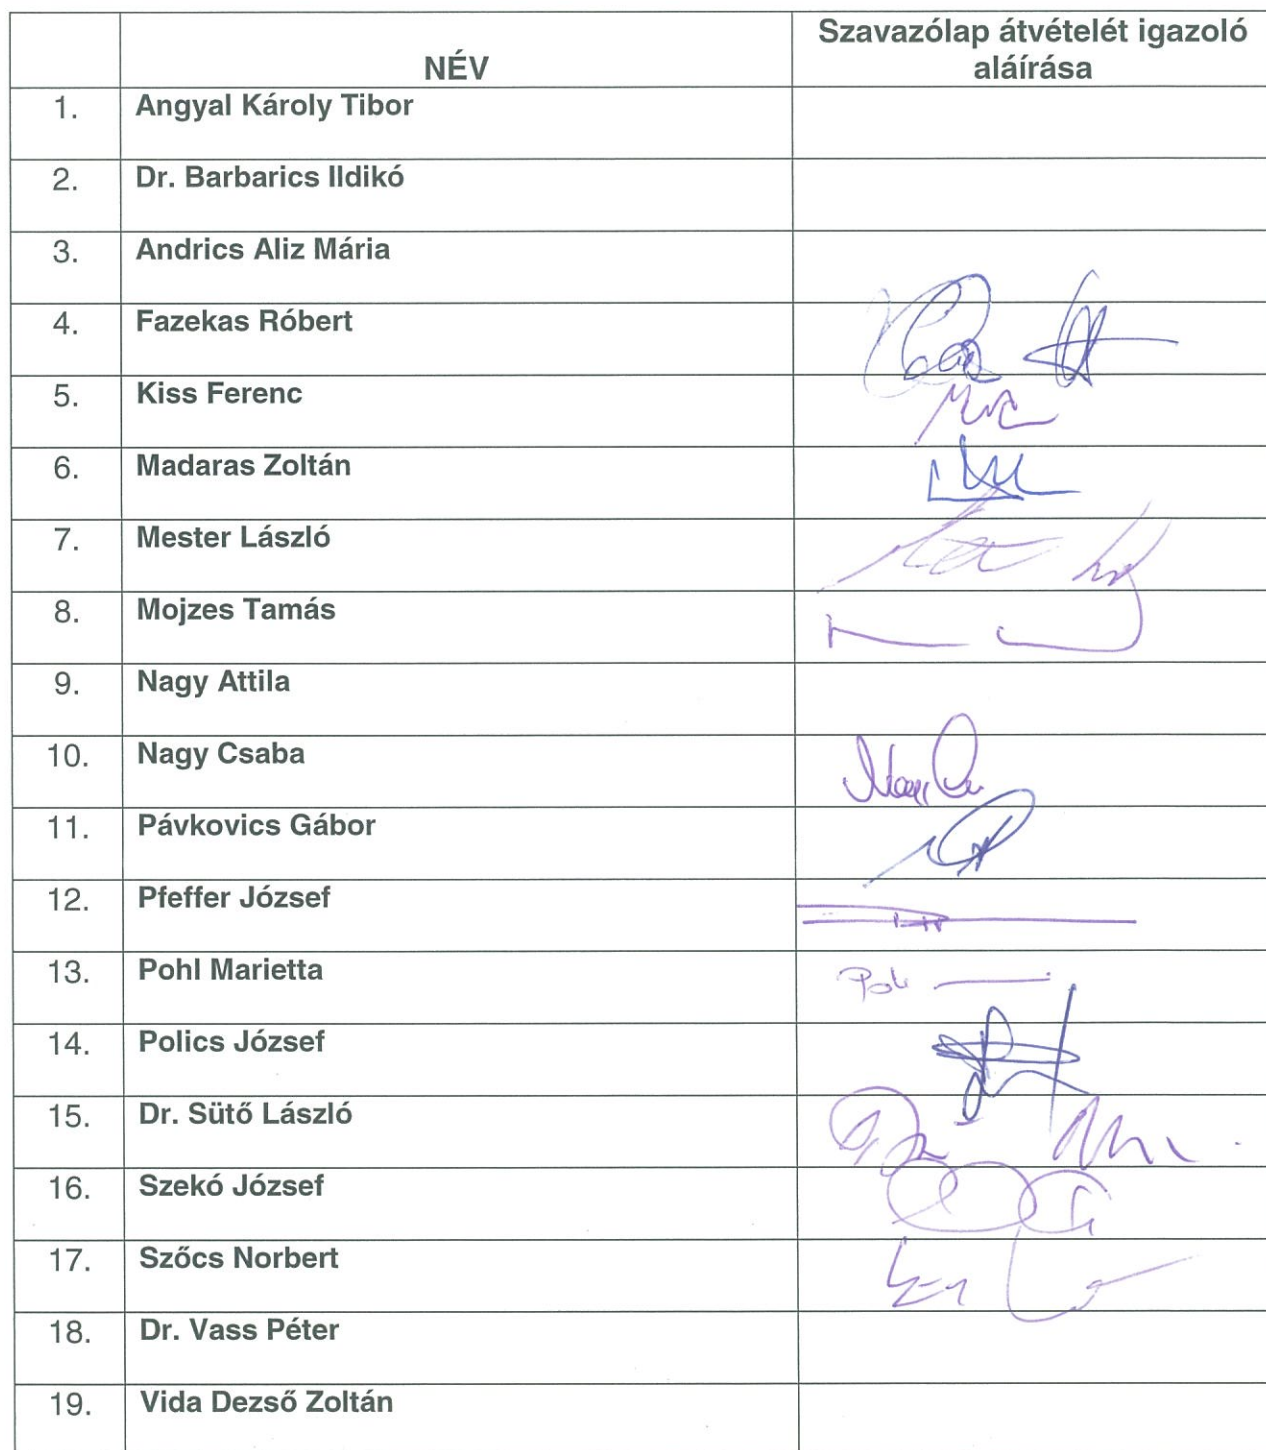 NÉV
Szavazólap átvételét igazoló
aláírása
1. Angyal Károly Tibor
2. Dr. Barbarics Ildikó
3. Andrics Aliz Mária
4. Fazekas Róbert
5. Kiss Ferenc
6. Madaras Zoltán
7. Mester László
8. Mojzes Tamás
9. Nagy Attila
10. Nagy Csaba
11. Pávkovics Gábor
12. Pfeffer József
13. Pohl Marietta
14. Polics József
15. Dr. Sütő László
16. Szekó József
17. Szőcs Norbert
18. Dr. Vass Péter
19. Vida Dezső Zoltán